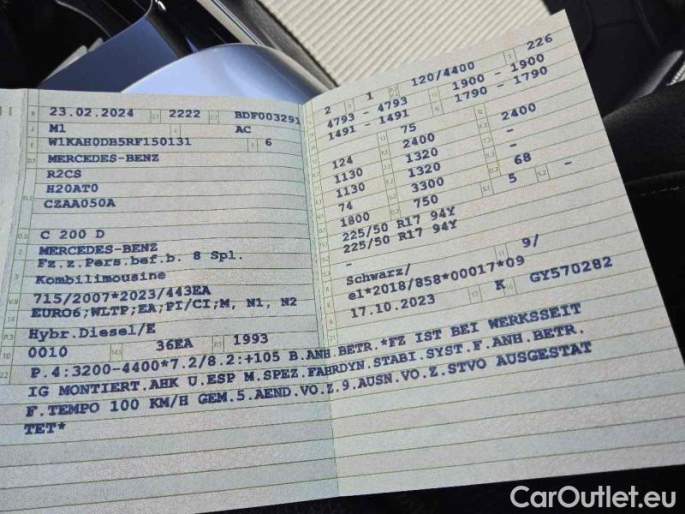 23.02.2024 2222 BDF003291
M1 AC
W1KAH0DB5RF150131 6
MERCEDES-BENZ
R2CS
H20AT0
CZAA050A
C 200 D
MERCEDES-BENZ
Fz.z.Pers.bef.b. 8 Spl.
Kombilimousine
715/2007*2023/443EA
EURO6;WLTP;EA;PI/CI;M, N1, N2
Hybr.Diesel/E
0010 36EA 1993
2 1 120/4400 226
4793 - 4793 1900 - 1900
1491 - 1491 1790 - 1790
75 2400
124 2400 -
1130 1320 -
1130 1320 68
74 3300 5 -
1800 750
225/50 R17 94Y
225/50 R17 94Y
-
Schwarz/ 9/
e1*2018/858*00017*09
17.10.2023 K GY570282
P.4:3200-4400*7.2/8.2:+105 B.ANH.BETR.*FZ IST BEI WERKSSEIT
IG MONTIERT.AHK U.ESP M.SPEZ.FAHRDYN.STABI.SYST.F.ANH.BETR.
F.TEMPO 100 KM/H GEM.5.AEND.VO.Z.9.AUSN.VO.Z.STVO AUSGESTAT
TET*
CarOutlet.eu